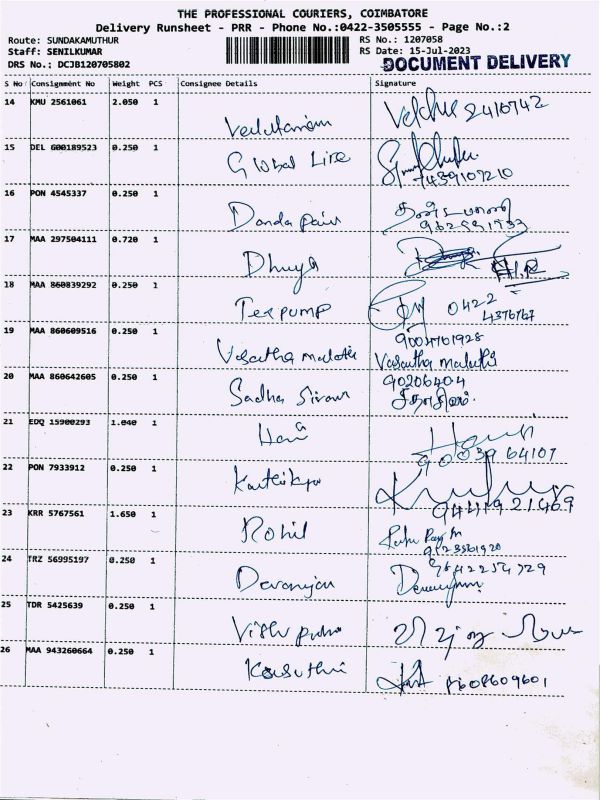 THE PROFESSIONAL COURIERS, COIMBATORE
Delivery Runsheet - PRR - Phone No.:0422-3505555 - Page No.:2
Route: SUNDAKAMUTHUR RS No.: 1207058
Staff: SENILKUMAR RS Date: 15-Jul-2023
DRS No.: DCJB120705802 DOCUMENT DELIVERY
S No Consignment No Weight PCS Consignee Details Signature
14 KMU 2561061 2.050 1
15 DEL 600189523 0.250 1 Global Line
16 PON 4545337 0.250 1 Dandapani தண்டபாணி
17 MAA 297504111 0.720 1 Dhuya
18 MAA 860839292 0.250 1 Texpump 0422
4376767
19 MAA 860609516 0.250 1 Vasantha malathi 9004761928
Vasantha malathi
20 MAA 860642605 0.250 1 Sadha Sivam 90206404
சதாசிவம்
21 EDQ 15900293 1.040 1 Hari Hari
90039 64107
22 PON 7933912 0.250 1 Karthikya
9441921469
23 KRR 5767561 1.650 1 Rohil
24 TRZ 56995197 0.250 1 Devanjan
25 TDR 5425639 0.250 1 Vishu
26 MAA 943260664 0.250 1 Kasuthi 8608609601